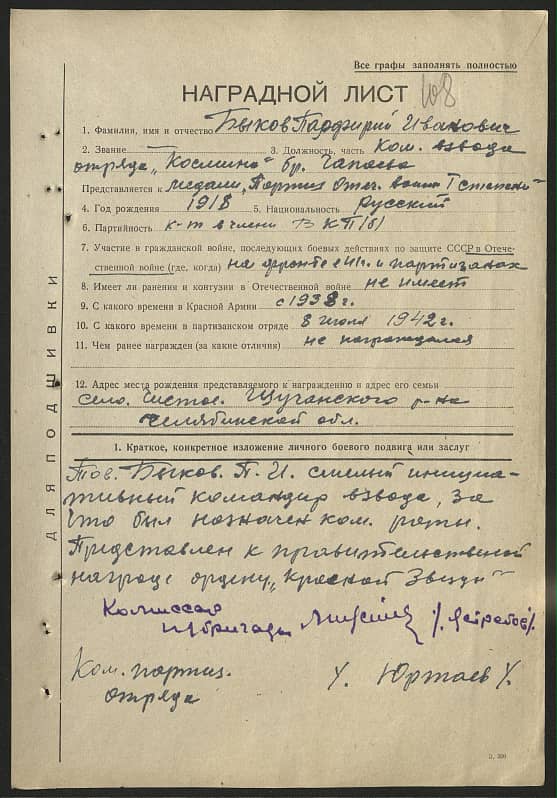 Все графы заполнять полностью
НАГРАДНОЙ ЛИСТ 108
1. Фамилия, имя и отчество Быков Парфирий Иванович
2. Звание — 3. Должность, часть Ком. взвода
отряда „Космина" бр. Чапаева
Представляется к медали „Партиз Отеч. войны I степени"
4. Год рождения 1918 5. Национальность русский
6. Партийность к-т в члени ВКП(б)
7. Участие в гражданской войне, последующих боевых действиях по защите СССР в Отече-
ственной войне (где, когда) на фронте с 41г. и партизанах
8. Имеет ли ранения и контузии в Отечественной войне не имеет
9. С какого времени в Красной Армии с 1938 г.
10. С какого времени в партизанском отряде 8 июля 1942 г.
11. Чем ранее награжден (за какие отличия) не награждался
12. Адрес места рождения представляемого к награждению и адрес его семьи
село. Чистое. Щучанского р-на
Челябинской обл.
1. Краткое, конкретное изложение личного боевого подвига или заслуг
Тов. Быков. П. И. смелый инициа-
тивный командир взвода, за
что был назначен ком. роты.
Представлен к правительственной
награде ордену „Красной Звезды"
Комиссар
п/бригады
Ком. партиз. У. Юртаев У.
отряда
ДЛЯ ПОДШИВКИ